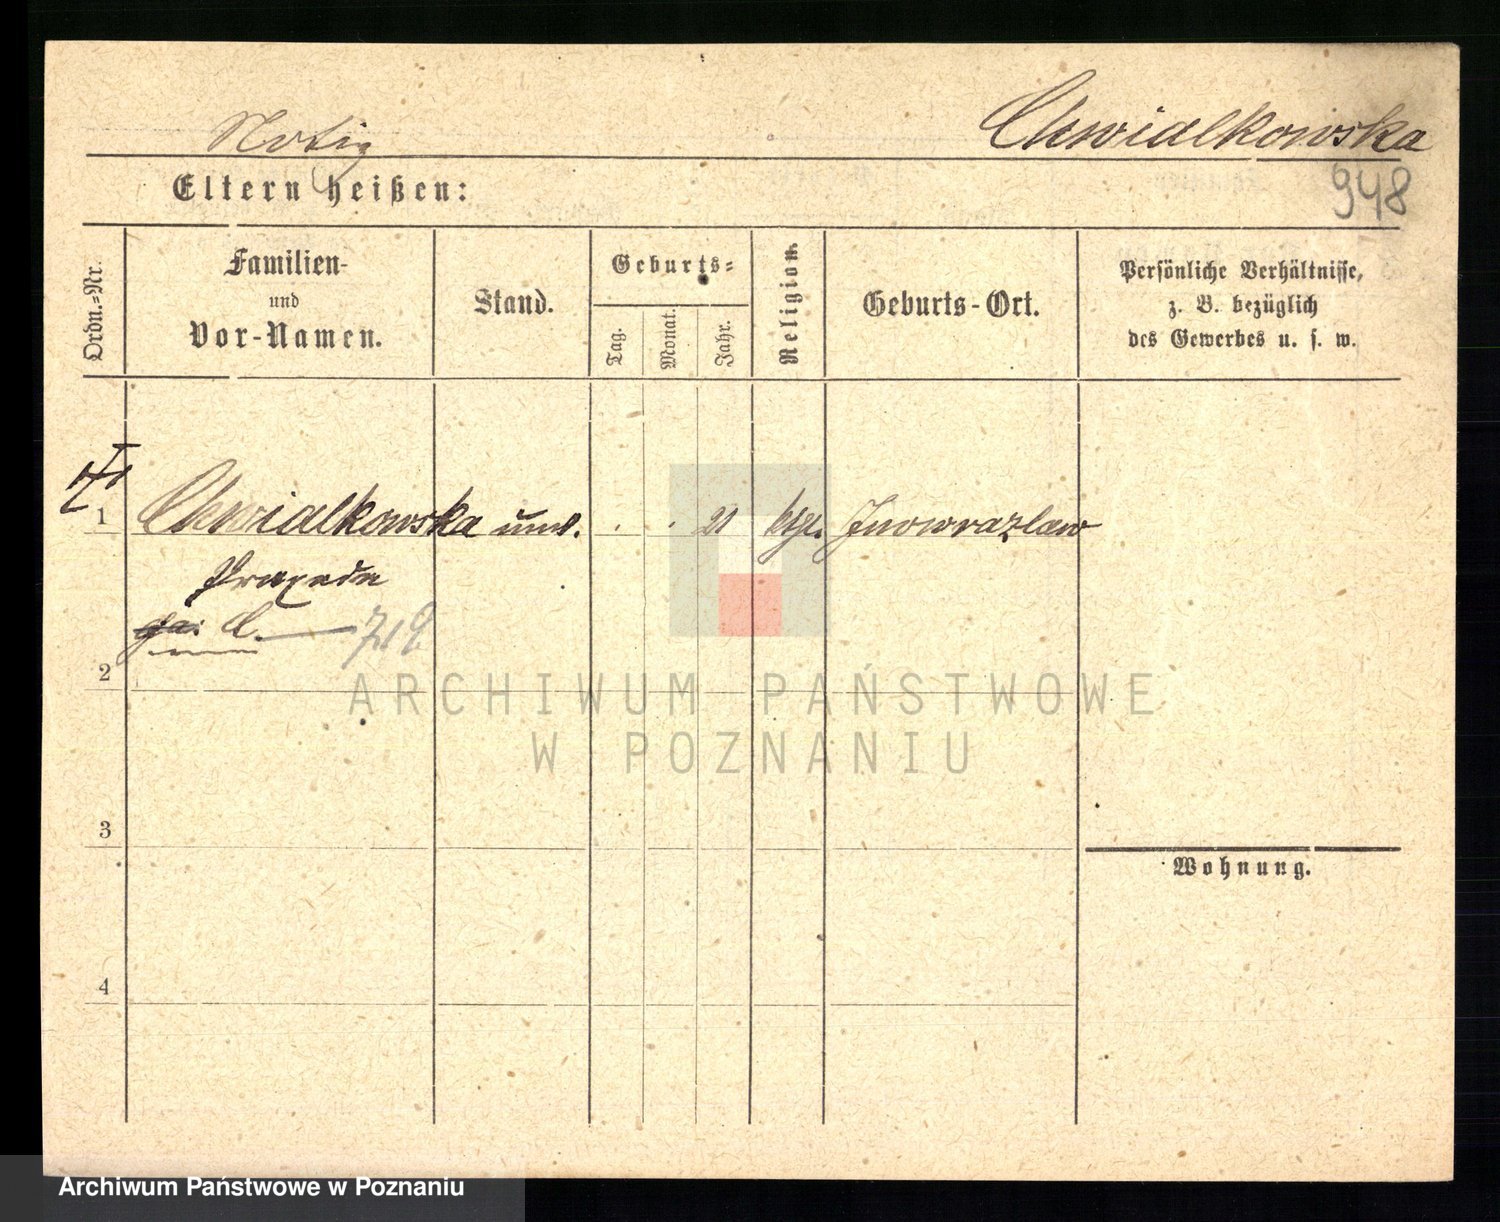 Notiz
Chwialkowska
Eltern heißen:
948
Ordn.=Nr.
Familien-
und
Vor-Namen.
Stand.
Geburts=
Tag.
Monat.
Jahr.
Religion.
Geburts-Ort.
Persönliche Verhältnisse,
z. B. bezüglich
des Gewerbes u. s. w.
1 Chwialkowska unv. . . 21 ktl. Inowrazlaw
Praxeda
C. 719
2
ARCHIWUM PAŃSTWOWE
W POZNANIU
3
Wohnung.
4
Archiwum Państwowe w Poznaniu